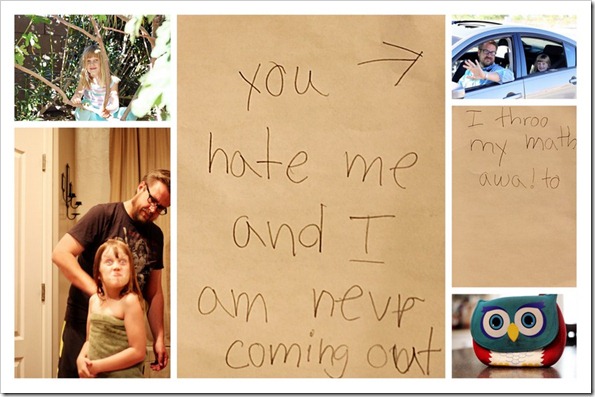 you →
hate me
and I
am nevr
coming out
I throo
my math
awa! to